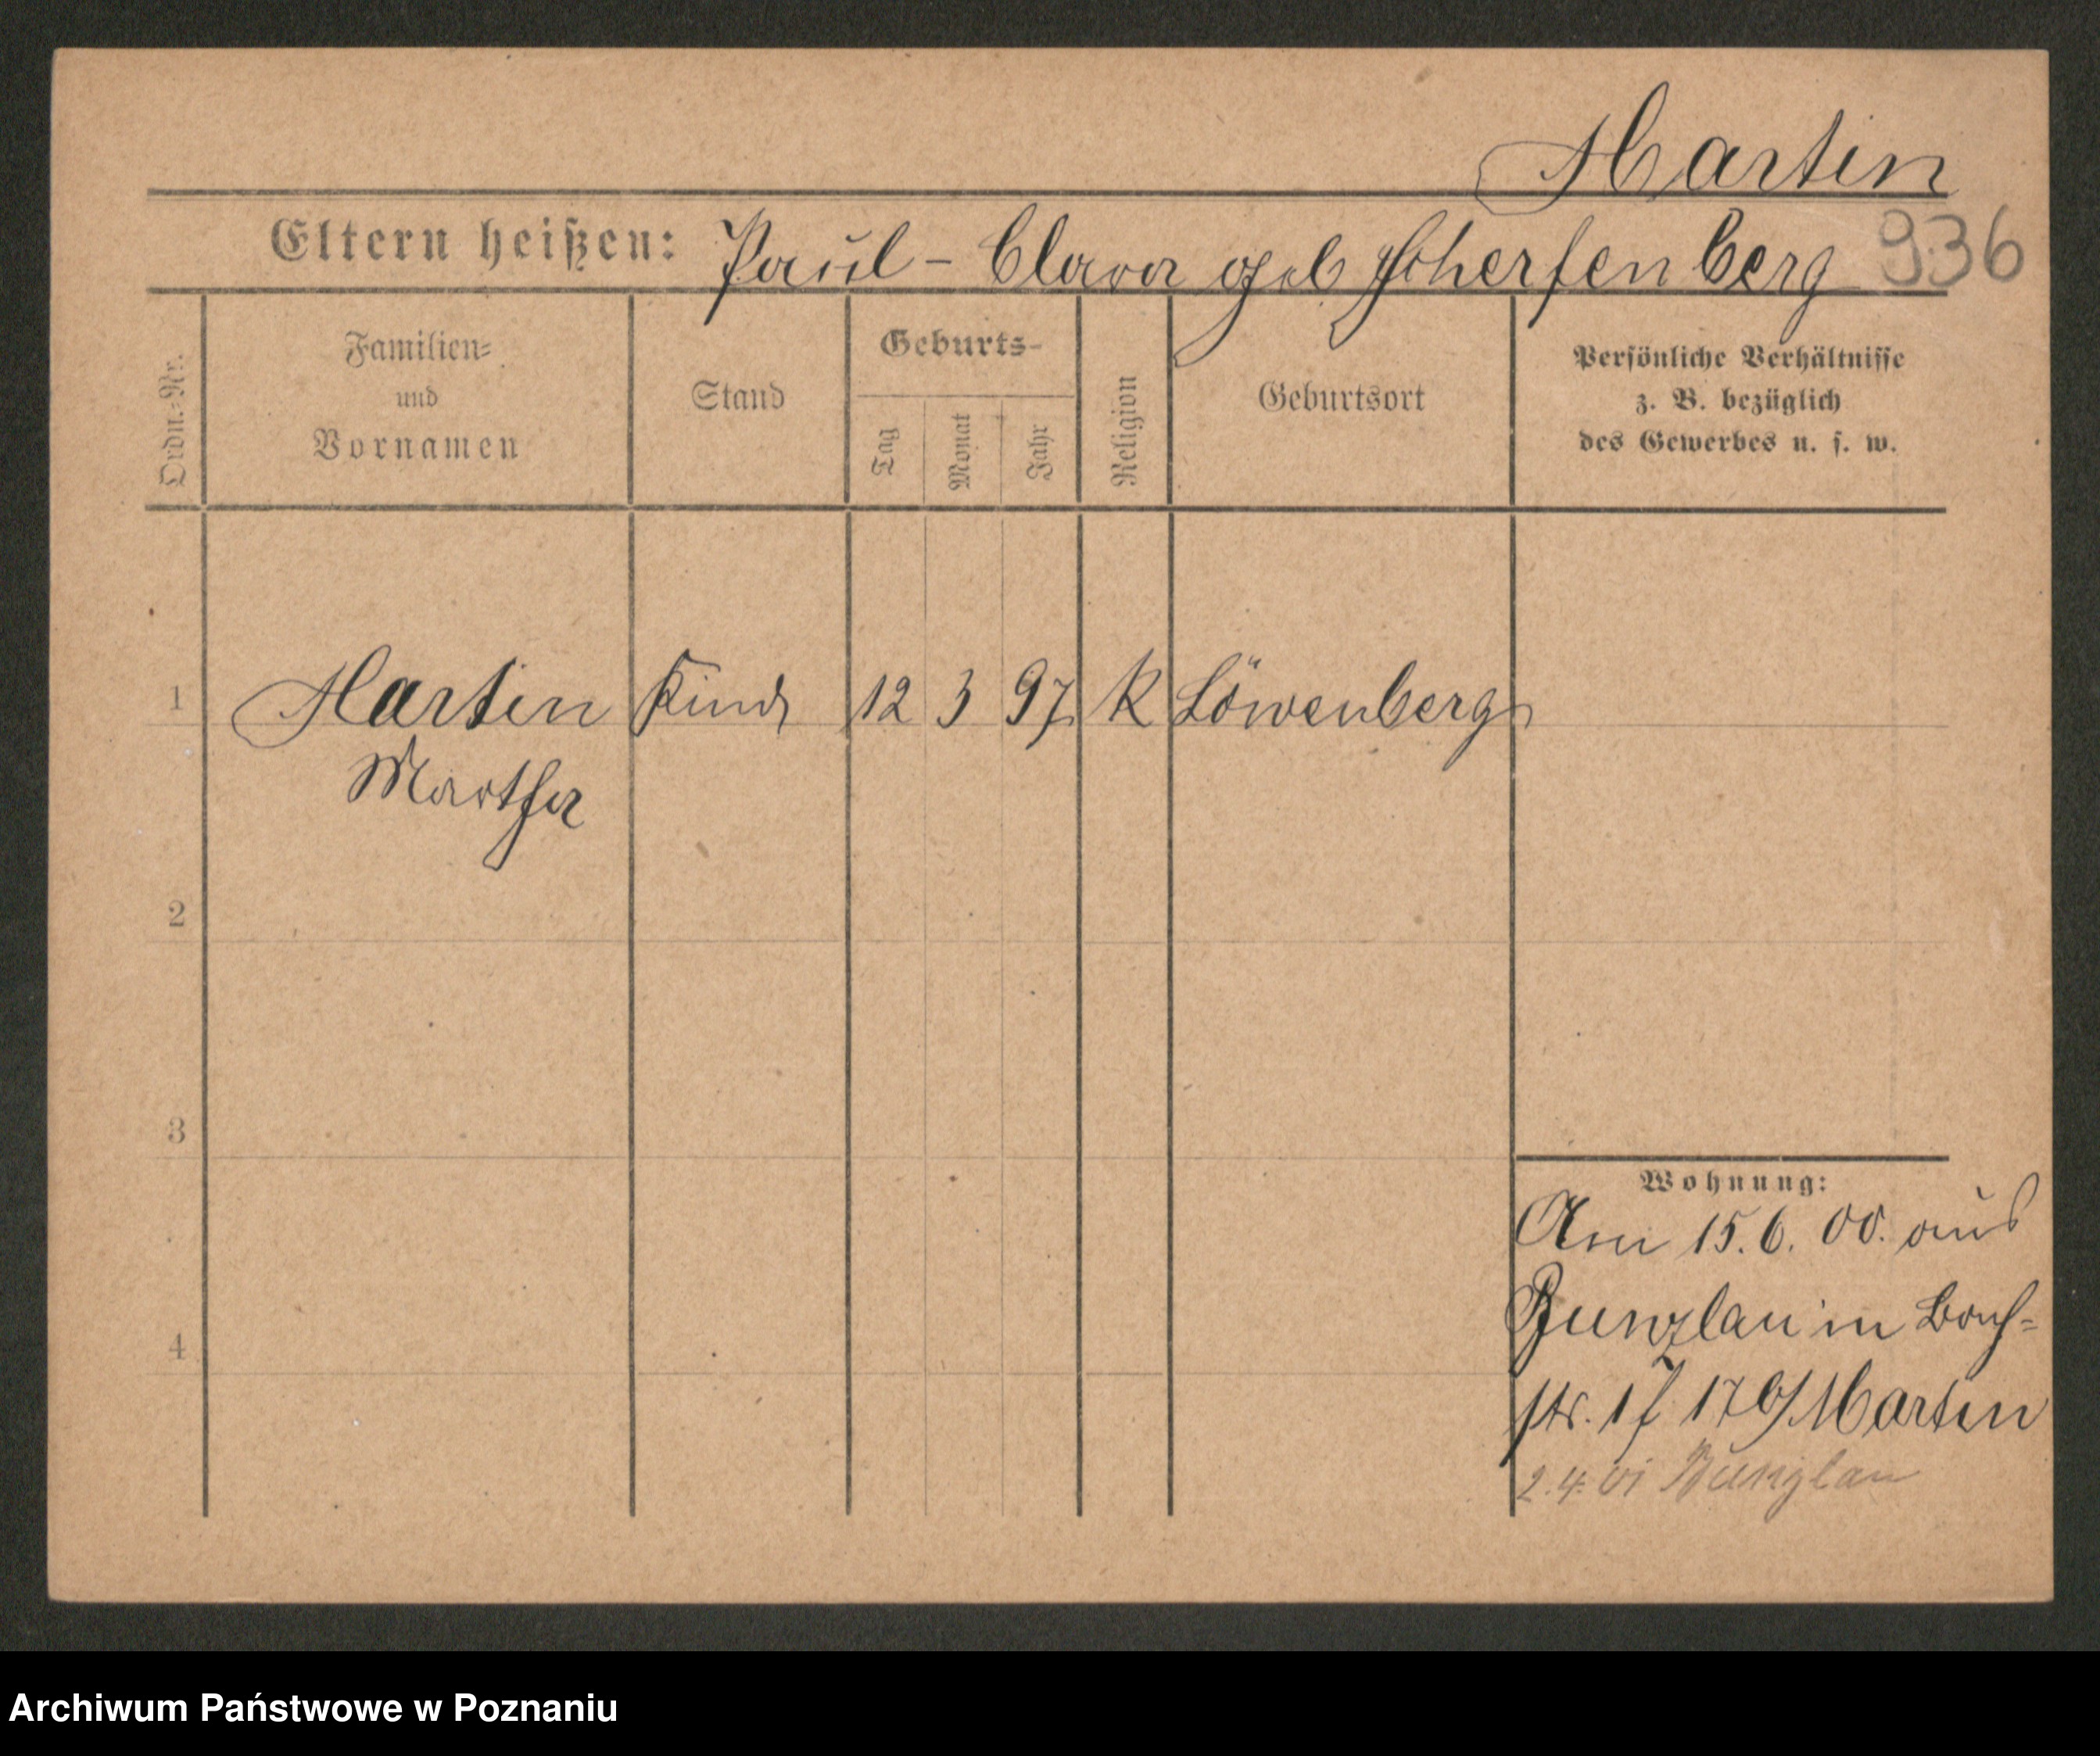 Martin
Eltern heißen: Paul - Clara geb Scherfenberg 936
Ordn.-Nr.
Familien-
und
Vornamen
Stand
Geburts-
Tag
Monat
Jahr
Religion
Geburtsort
Persönliche Verhältnisse
z. B. bezüglich
des Gewerbes u. s. w.
1 Martin Kind 12 3 97 K Löwenberg
Martha
2
3
4
Wohnung:
Am 15.6.00. aus
Bunzlau in
str. 17 Martin
2.4.01 Bunzlau
Archiwum Państwowe w Poznaniu